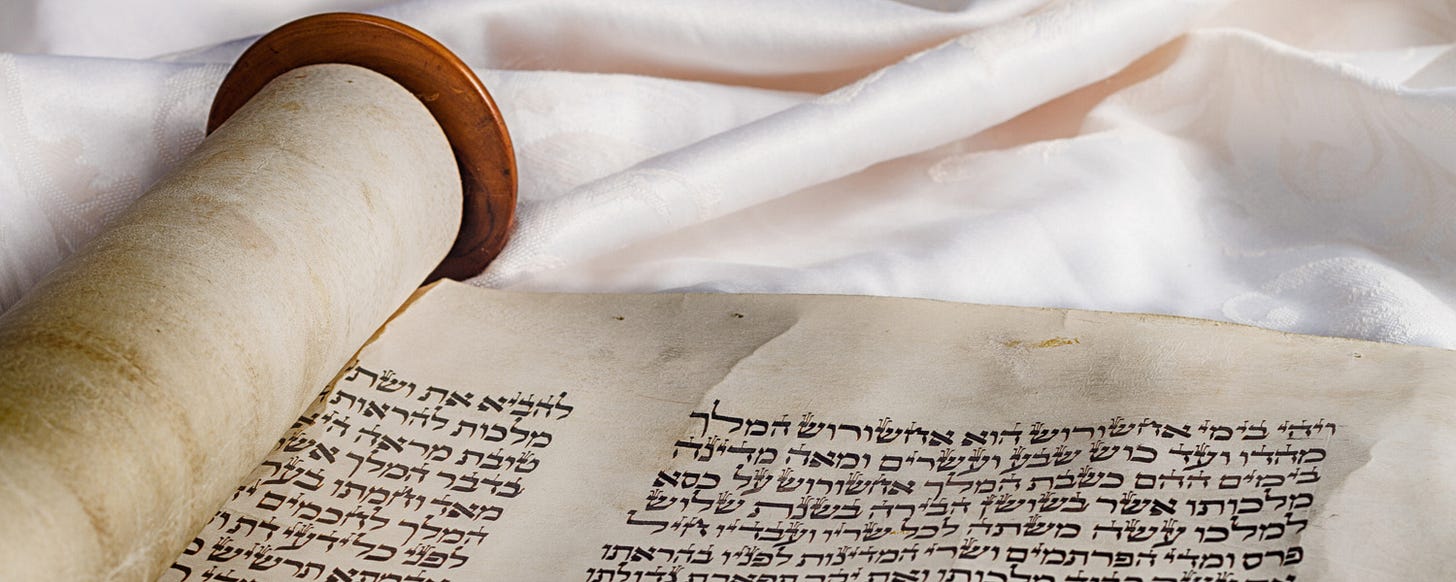 ויהי בימי אחשורוש הוא אחשורוש המלך
מהדו ועד כוש שבע ועשרים ומאה מדינה
בימים ההם כשבת המלך אחשורוש על כסא
מלכותו אשר בשושן הבירה בשנת שלוש
למלכו עשה משתה לכל שריו ועבדיו חיל
פרס ומדי הפרתמים ושרי המדינות לפניו בהראתו
מלכותו ואת יקר תפארת גדולתו
להביא את
מלכות להראות
טובת מראה היא
בדבר המלך
מאד וחמתו
המלך לחכמים
לפני כל ידעי דת
תרשיש